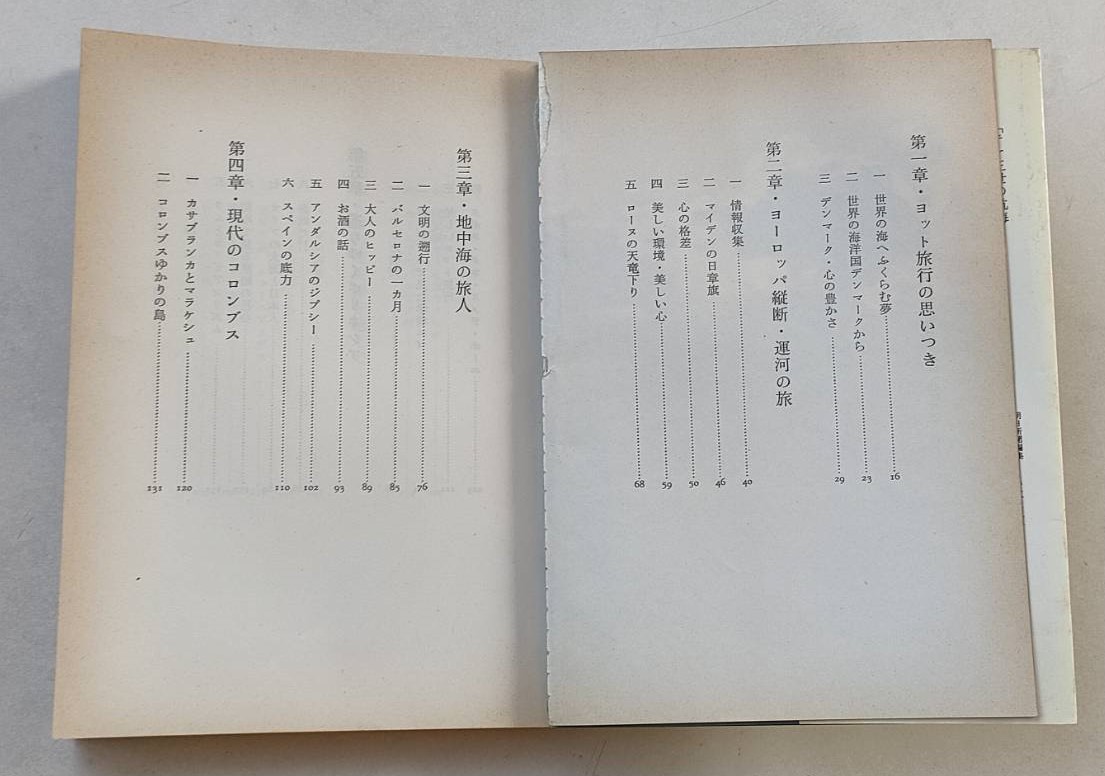 第一章・ヨット旅行の思いつき
一 世界の海へふくらむ夢……16
二 世界の海洋国デンマークから……23
三 デンマーク・心の豊かさ……29
第二章・ヨーロッパ縦断・運河の旅
一 情報収集……40
二 マイデンの日章旗……46
三 心の格差……50
四 美しい環境・美しい心……59
五 ローヌの天竜下り……68
第三章・地中海の旅人
一 文明の遡行……76
二 バルセロナの一カ月……85
三 大人のヒッピー……89
四 お酒の話……93
五 アンダルシアのジプシー……102
六 スペインの底力……110
第四章・現代のコロンブス
一 カサブランカとマラケシュ……120
二 コロンブスゆかりの島……131